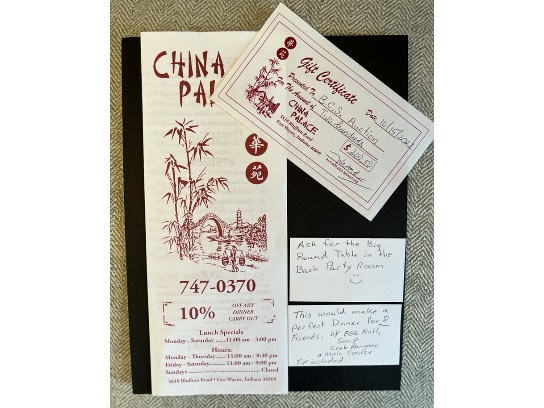 CHINA
PAL
華
苑
747-0370
10% OFF ANY
DINNER
CARRY OUT
Lunch Specials
Monday - Saturday ..... 11:00 am - 3:00 pm
Hours:
Monday - Thursday...... 11:00 am - 8:30 pm
Friday - Saturday........... 11:00 am - 9:00 pm
Sundays .......................................... Closed
5830 Bluffton Road • Fort Wayne, Indiana 46809
華
苑
Gift Certificate
Presented To B.C.S. Auction Date
For The Amount of Two Hundreds
CHINA
PALACE
$ 200.00
Bluffton Road
Fort Wayne, Indiana 46809
Ask for the Big
Round Table in the
Back Party Room
This would make a
perfect Dinner for 8
Friends. w/ Egg Roll,
Soup
Crab Rangoon
a Main Course
Tip included.